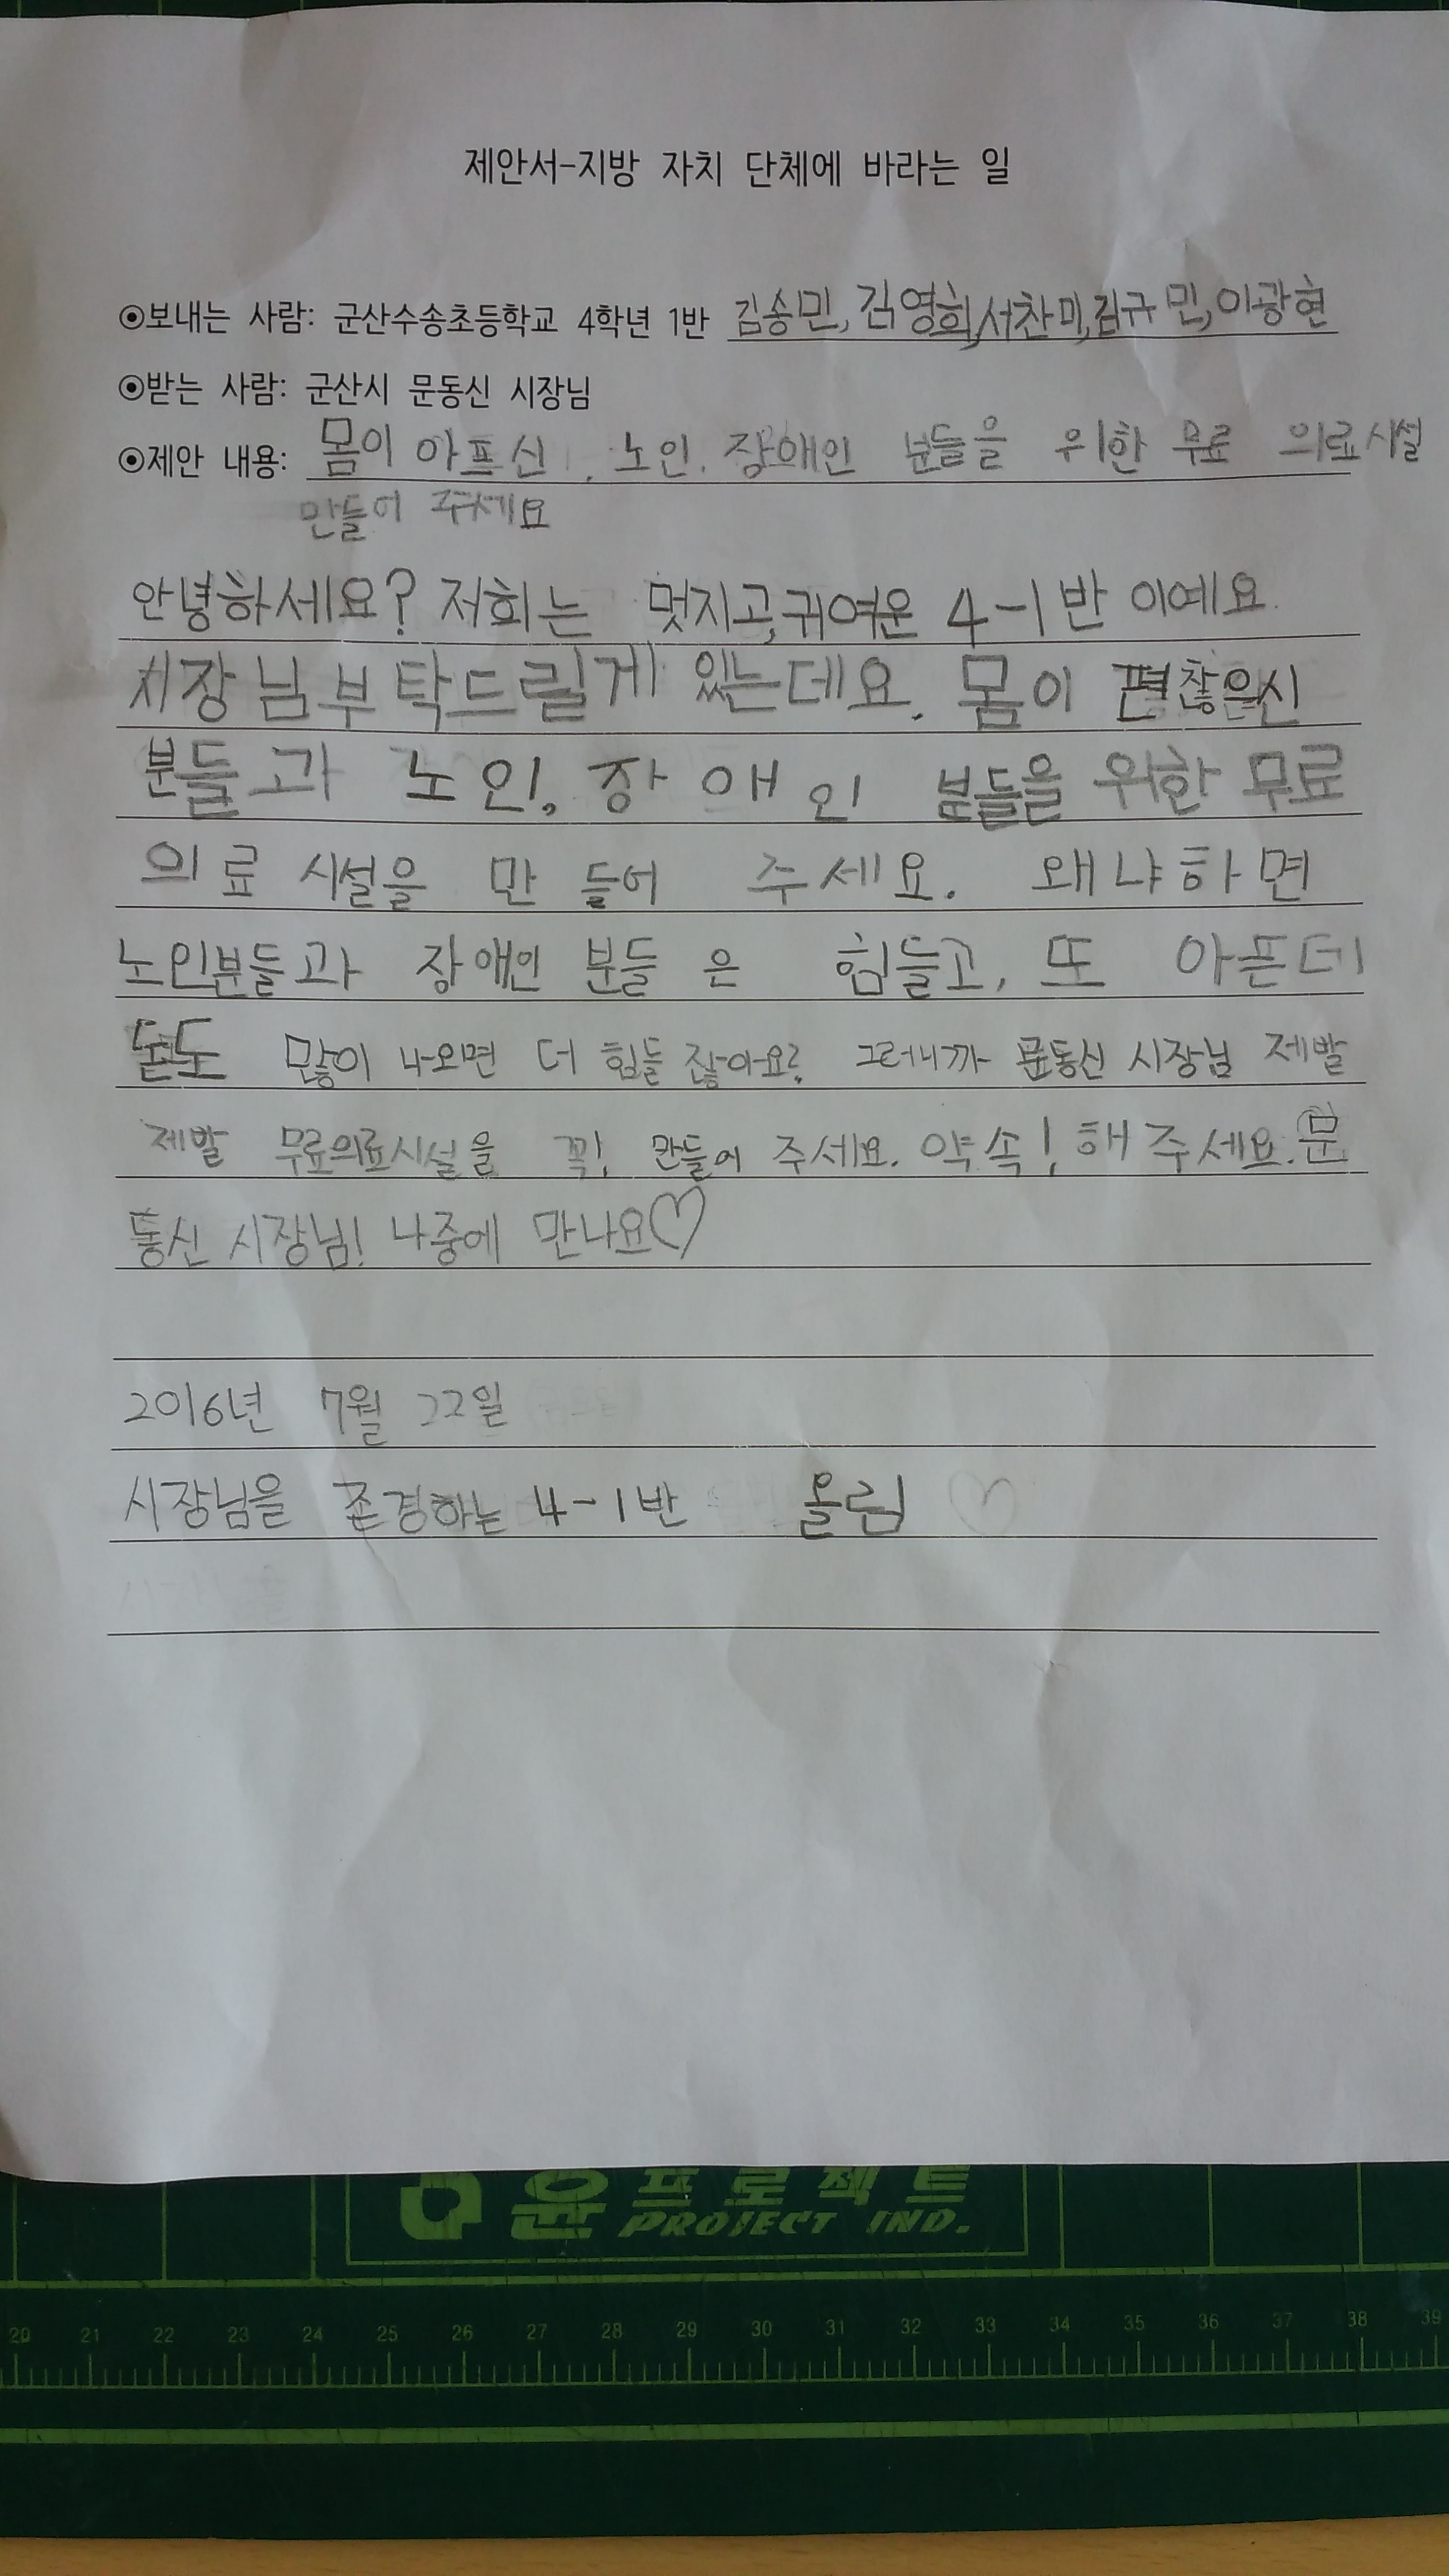 제안서-지방 자치 단체에 바라는 일
⊙보내는 사람: 군산수송초등학교 4학년 1반 김송민, 김영희, 서찬미, 김규민, 이광현
⊙받는 사람: 군산시 문동신 시장님
⊙제안 내용: 몸이 아프신, 노인. 장애인 분들을 위한 무료 의료시설
만들어 주세요
안녕하세요? 저희는 멋지고, 귀여운 4-1반 이예요.
시장님 부탁드릴게 있는데요. 몸이 편찮으신
분들과 노인, 장애인 분들을 위한 무료
의료 시설을 만들어 주세요. 왜냐하면
노인분들과 장애인 분들은 힘들고, 또 아픈데
돈도 많이 나오면 더 힘들잖아요? 그러니까 문동신 시장님 제발
제발 무료의료시설을 꼭! 만들어 주세요. 약속! 해주세요. 문
동신 시장님! 나중에 만나요♡
2016년 7월 22일
시장님을 존경하는 4-1반 올림 ♡
윤프로젝트
PROJECT IND.
20 21 22 23 24 25 26 27 28 29 30 31 32 33 34 35 36 37 38 39